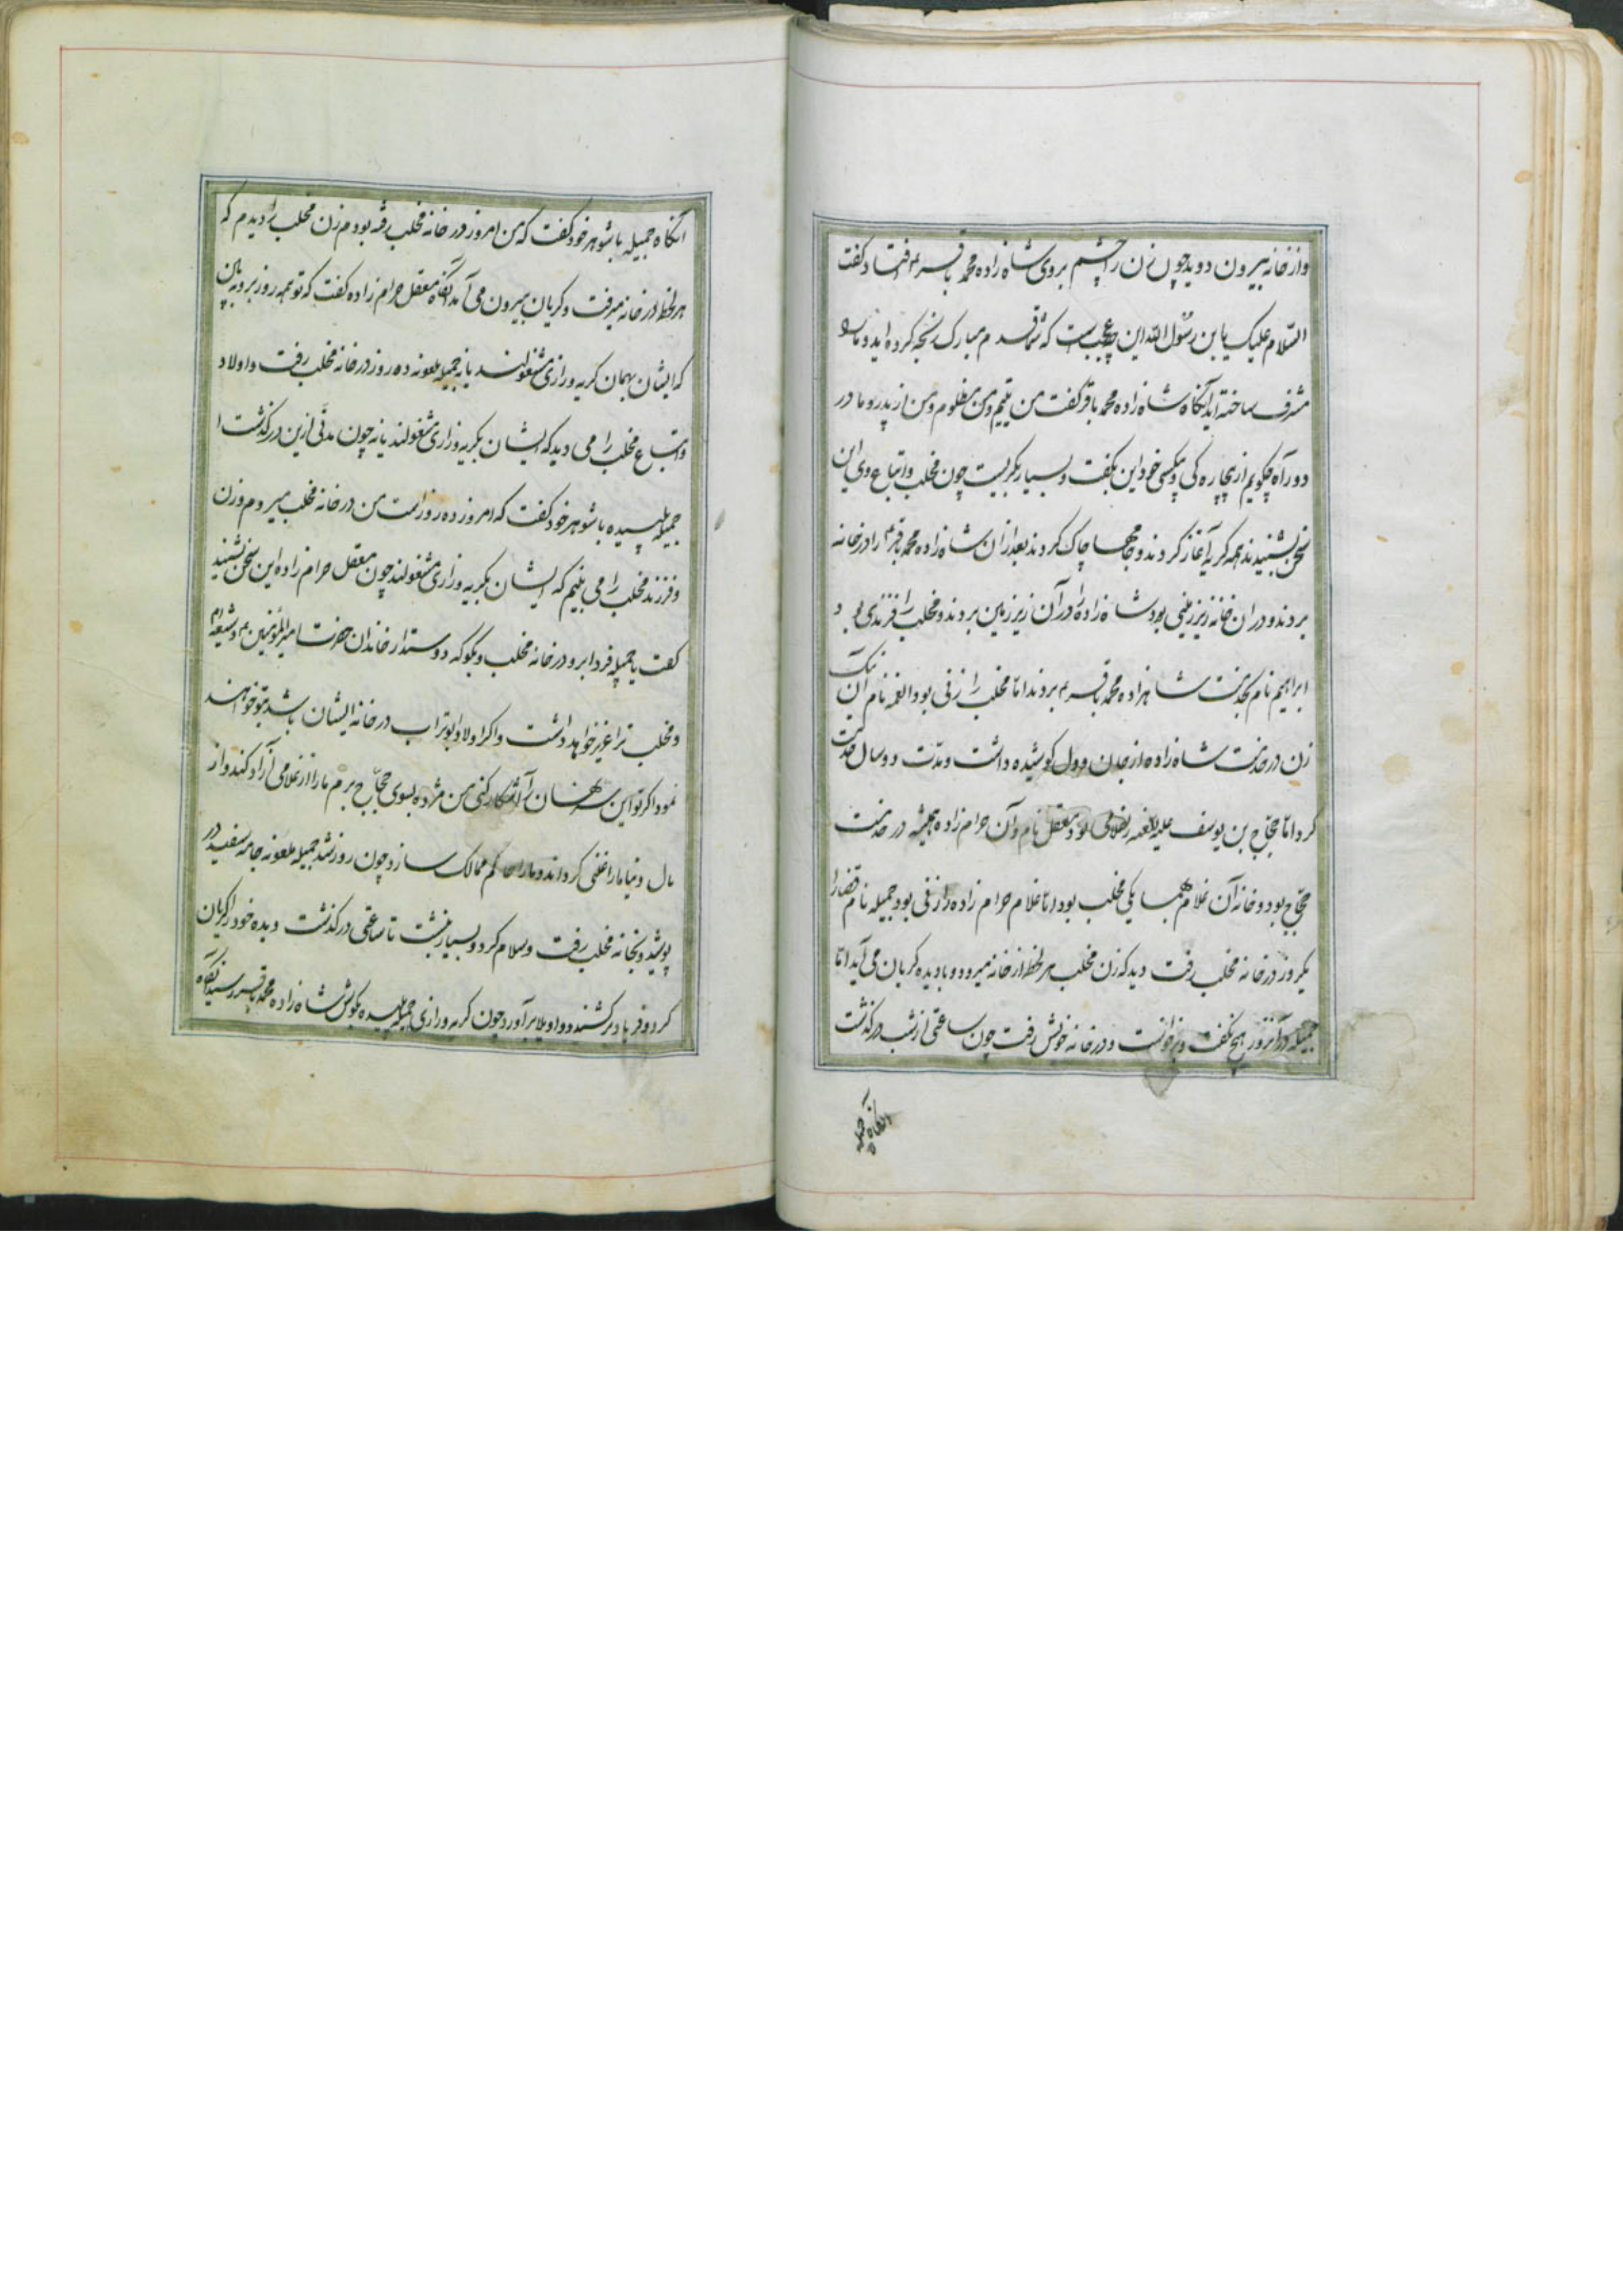 واز خانه بیرون دوید چون زن را چشم بروی شاه زاده محمد باقر افتاد و گفت
السلام علیک یا بن رسول الله این چه عجبست که شما قدم مبارک رنجه کرده اید و ما را
مشرف ساخته اید آنگاه شاه زاده محمد باقر گفت من یتیم و من مظلوم و من از پدر و مادر
دور آه چگویم از بیچاره کی و بیکسی خود این بگفت و بسیار بگریست چون مخلب و اتباع وی این
سخن بشنیدند همه گریه آغاز کردند و جامها چاک کردند بعد از آن شاه زاده محمد باقر را در خانه
بردند و در ان خانه زیر زمینی بود شاه زاده را در آن زیر زمین بردند و مخلب را فرزندی بود
ابراهیم نام بخدمت شاهزاده محمد باقر بردند اما مخلب را زنی بود نام آن
زن در خدمت شاه زاده از جان و دل کوشیده داشت و مدت دو سال خدمت
کرد اما حجاج بن یوسف علیه اللعنه را غلامی بود معقل نام و آن حرام زاده همیشه در خدمت
حجاج بود و خانه آن غلام همسایکی مخلب بود اما غلام حرام زاده را زنی بود جمیله نام قضا را
یکروز در خانه مخلب رفت دید که زن مخلب هر لحظه از خانه میرود و با دیده گریان می آید اما
جمیله در آنروز هیچ نگفت و برخواست و در خانه خویش رفت چون ساعتی از شب درگذشت
انگاه جمیله
انگاه جمیله با شوهر خود گفت که من امروز در خانه مخلب رفته بودم زن مخلب را دیدم که
هر لحظه در خانه میرفت و گریان بیرون می آمد آنگاه معقل حرام زاده گفت که تو همه روز برو به بین
که ایشان بهمان گریه و زاری مشغولند یا نه جمیله ملعونه ده روز در خانه مخلب رفت و اولاد
و اتباع مخلب را می دید که ایشان بگریه و زاری مشغولند یا نه چون مدتی ازین درگذشت
جمیله پلیده با شوهر خود گفت که امروز ده روز است من در خانه مخلب میروم و زن
و فرزند مخلب را می بینم که ایشان بگریه و زاری مشغولند چون معقل حرام زاده این سخن بشنید
گفت یا جمیله فردا برو در خانه مخلب و بگو که دوستدار خاندان حضرت امیرالمؤمنین و شیعه ام
و مخلب ترا عزیز خواهد داشت و اگر اولاد ابوتراب در خانه ایشان باشد بتو خواهند
نمود اگر تو این سر نهان را آشکار کنی من مژده بسوی حجاج برم ما را از غلامی آزاد کند و از
مال دنیا ما را غنی گرداند و ما را حاکم ممالک سازد چون روز شد جمیله ملعونه جامه سفید در
پوشید و بخانه مخلب رفت و سلام کرد و بسیار بنشست تا ساعتی درگذشت دیده خود را گریان
کرد و فریاد برکشید و واویلا برآورد چون گریه و زاری جمیله پلیده بگوش شاه زاده محمد باقر رسید آنگاه